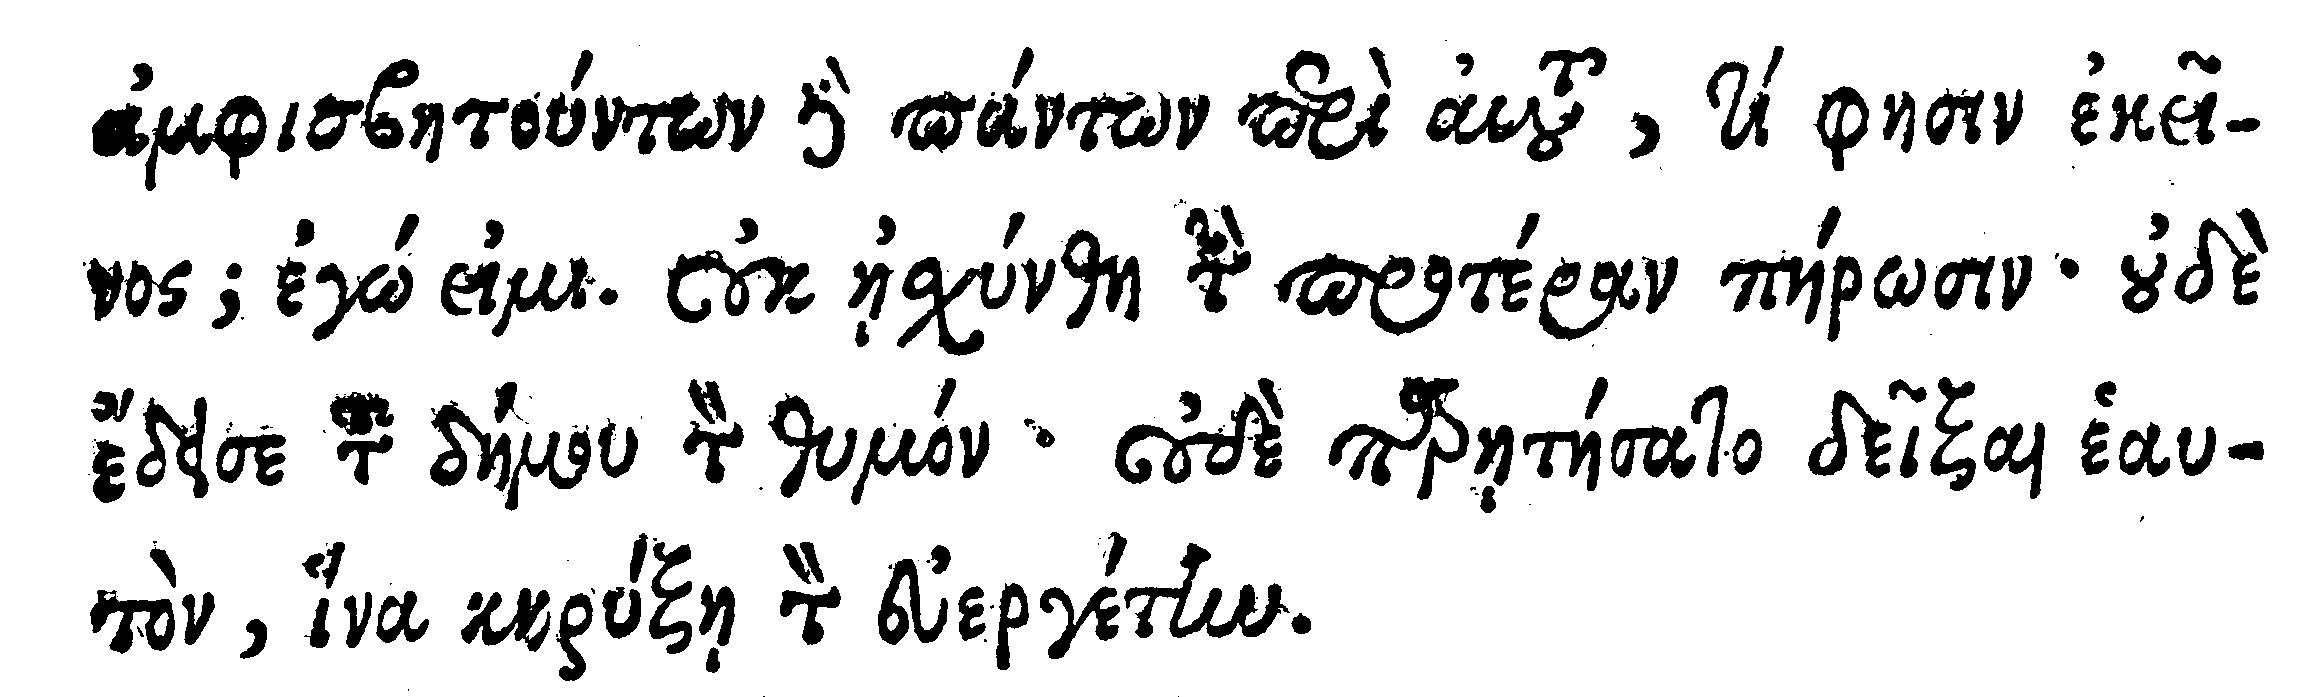 ἀμφισβητούντων ἢ πάντων περὶ αὐτοῦ, τί φησιν ἐκεῖ-
νος; ἐγώ εἰμι. οὐκ ᾐσχύνθη τὴν προτέραν πήρωσιν· οὐδὲ
ἔδεισε τοῦ δήμου τὸν θυμόν· οὐδὲ παρῃτήσατο δεῖξαι ἑαυ-
τὸν, ἵνα κηρύξῃ τὸν εὐεργέτην.